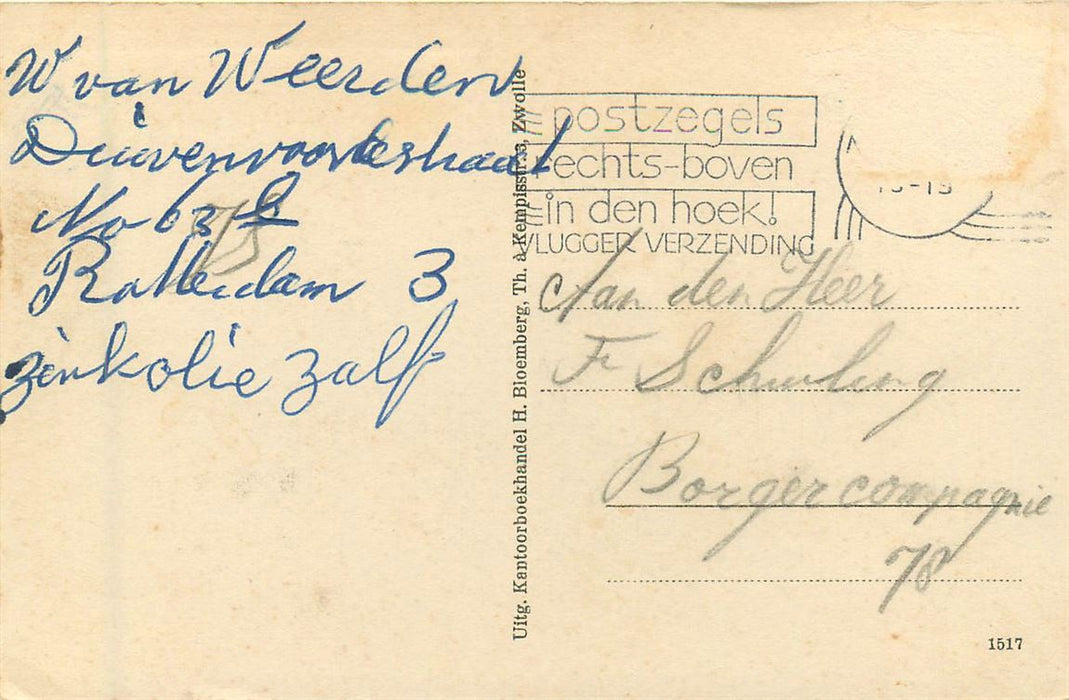 W van Weerden
Duivenvoordestraat
No 63 B
75
Rotterdam 3
zinkolie zalf
Uitg. Kantoorboekhandel H. Bloemberg, Th. à Kempisstr. 53, Zwolle
postzegels
rechts-boven
in den hoek!
VLUGGER VERZENDING
Aan den Heer
F Schuling
Borgercompagnie
78
1517